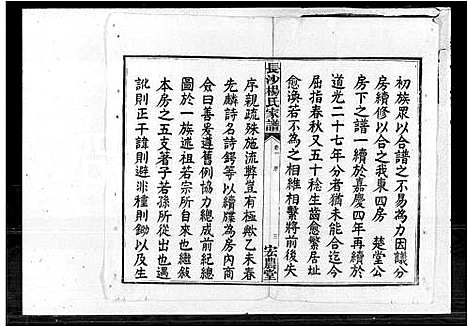 初族眾以合譜之不易為力因議分
房續修以合之我東四房　楚堂公
房下之譜一續於嘉慶四年再續於
道光二十七年分者猶未能合迄今
屈指春秋又五十稔生齒愈繁居址
愈渙若不為之相維相繫將前後失
長沙楊氏家譜
卷一　序
三
宏農堂
序親疏殊施流弊豈有極歟乙未春
先麟詩名詩鍔等以續牒為房內商
僉曰善爰遵舊例協力總成前紀總
圖於一族述祖若宗所自來也繼敘
本房之五支著子若孫所從出也
訛則正干諱則避非種則鋤以及生